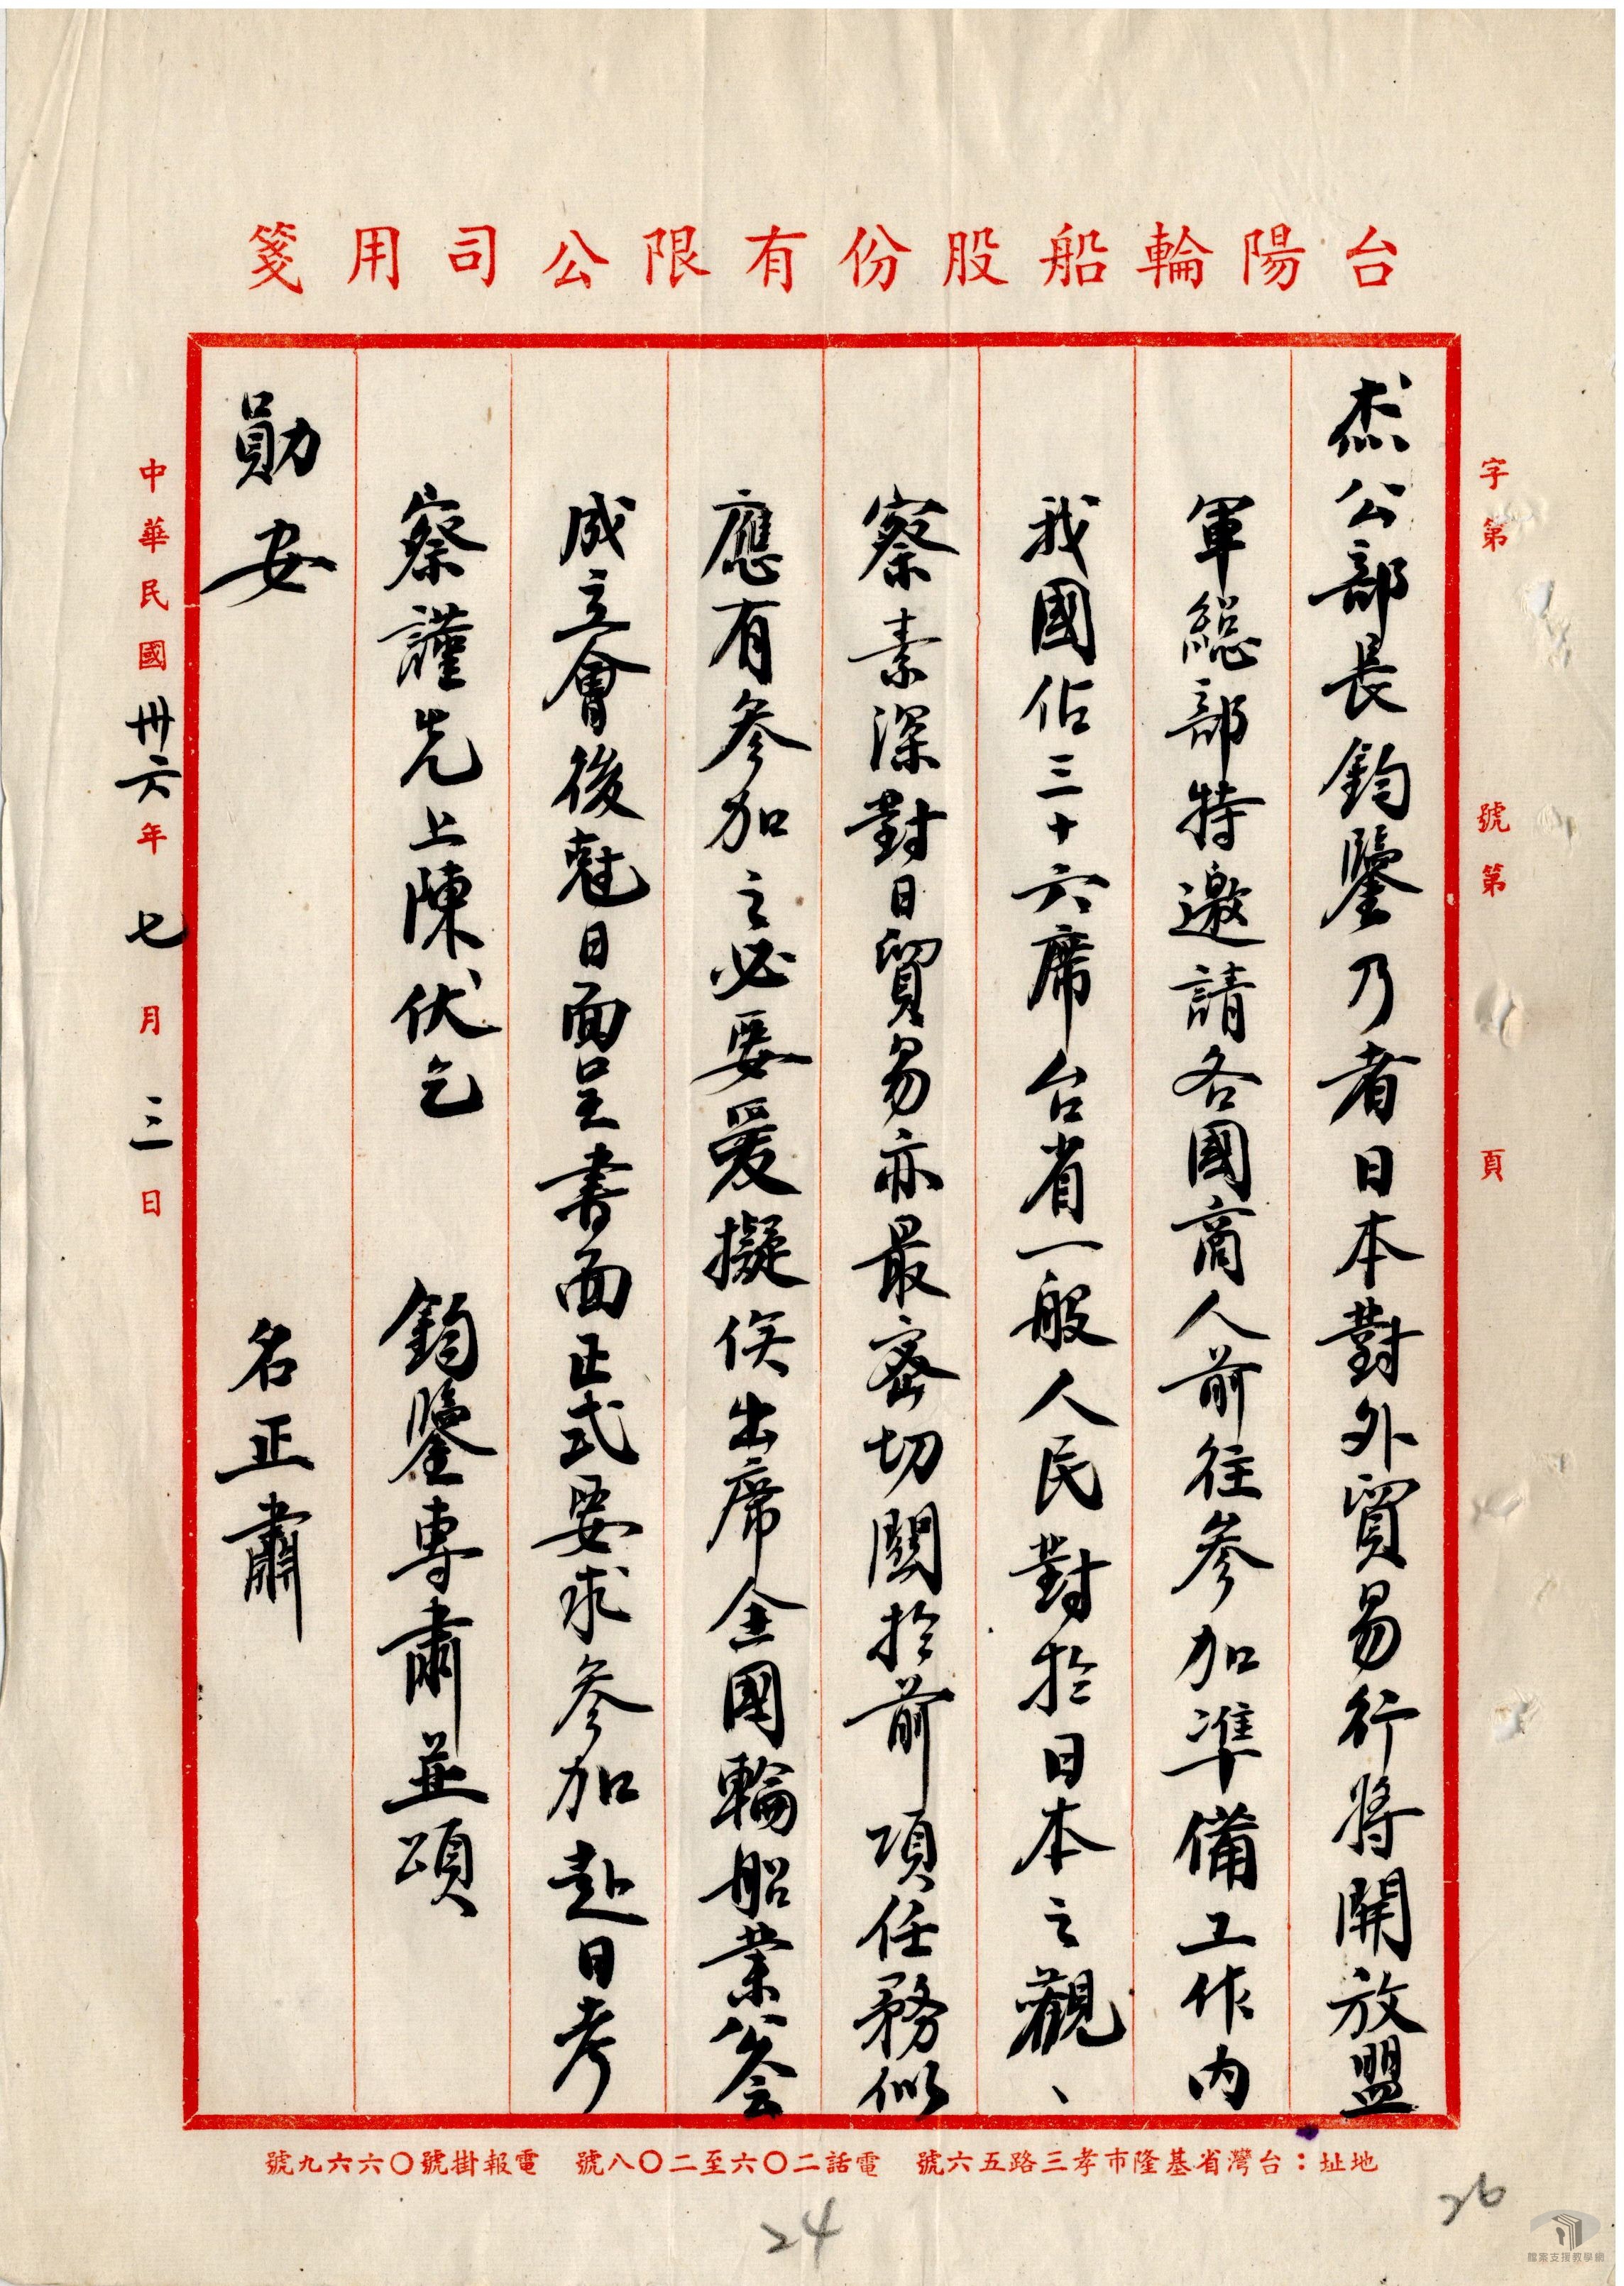 台陽輪船股份有限公司用箋
字第　號第　頁
杰公部長鈞鑒乃者日本對外貿易行將開放盟
軍総部特邀請各國商人前往參加準備工作內
我國佔三十六席台省一般人民對於日本之觀、
察素深對日貿易亦最密切関於前項任務似
應有參加之必要爰擬俟出席全國輪船業公会
成立會後尅日面呈書面正式要求參加赴日考
察謹先上陳伏乞　鈞鑒專肅並頌
勛安　名正肅
中華民國卅六年七月三日
地址：台灣省基隆市孝三路五六號　電話二〇六至二〇八號　電報掛號〇六六九號
24
26
檔案支援教學網